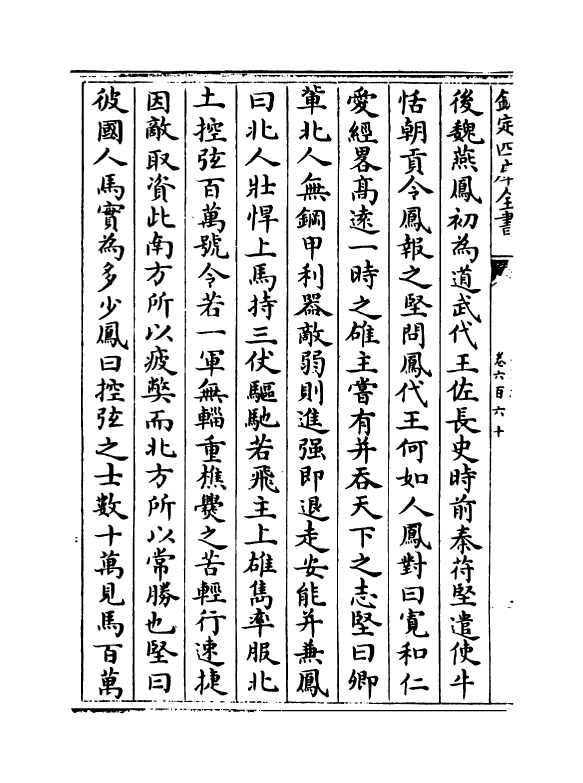 欽定四庫全書
卷六百六十
後魏燕鳳初為道武代王佐長史時前秦苻堅遣使牛
恬朝貢令鳳報之堅問鳳代王何如人鳳對曰寛和仁
愛經畧髙逺一時之雄主嘗有并吞天下之志堅曰卿
輩北人無鋼甲利器敵弱則進强即退走安能并兼鳳
曰北人壯悍上馬持三仗驅馳若飛主上雄雋率服北
土控弦百萬號令若一軍無輜重樵爨之苦輕行速捷
因敵取資此南方所以疲獘而北方所以常勝也堅曰
彼國人馬實為多少鳳曰控弦之士數十萬見馬百萬